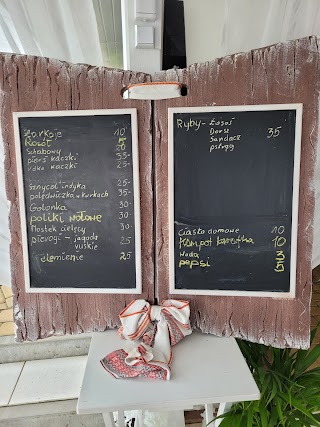 Żurkoje 10
Rosół 15
Schabowy 28
pierś kaczki 35-
udko kaczki 25-
Sznycel indyka 25-
polędwiczka w kurkach 35-
Golonka 30-
poliki wołowe 30
Mostek cielęcy 30-
pierogi - jagoda 25
ruskie
ziemienie 25
Ryby - Łosoś
Dorsz 35
Sandacz
pstrąg
Ciasto domowe 10
Kompot karafka 10
Woda 3
pepsi 5